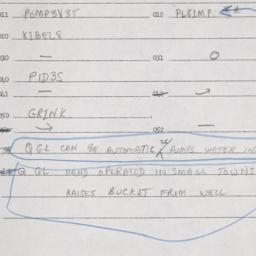 011 POMPEVET 012 PLEIMP
020 KIBELS
030 — 031 O
040 PIDES
041 —
050 GRINK
052 —
QGL CAN BE AUTOMATIC PUMPS WATER IN
Q GL HAND OPERATED IN SMALL TOWNS
RAISES BUCKET FROM WELL